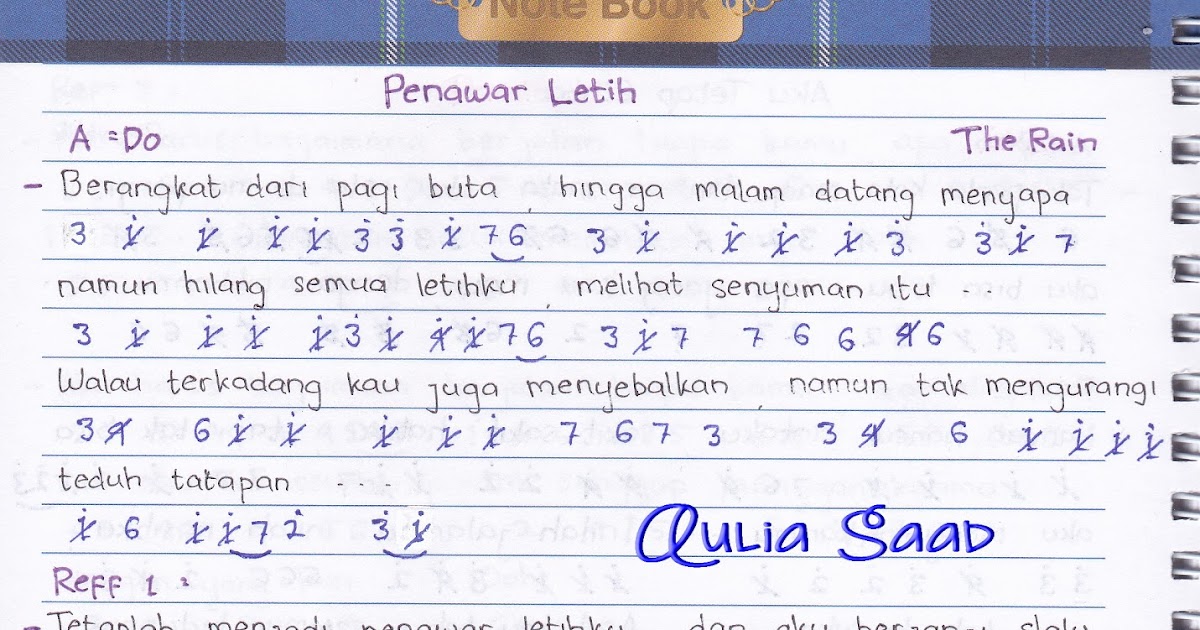 Note Book
Penawar Letih
A = Do
The Rain
- Berangkat dari pagi buta , hingga malam datang menyapa
3 1̸̇ 1̸̇ 1̸̇ 1̸̇ 3̇ 3̇ 1̸̇ 7 6 3 1̸̇ 1̸̇ 1̸̇ 1̸̇ 3̇ 3 1̸̇ 7
namun hilang semua letihku , melihat senyuman itu .
3 1̸̇ 1̸̇ 1̸̇ 1̸̇ 3̇ 1̸̇ 1̸̇ 1̸̇ 7 6 3 1̸̇ 7 7 6 6 4̸ 6
Walau terkadang kau juga menyebalkan , namun tak mengurangi
3 4̸ 6 1̸̇ 1̸̇ 1̸̇ 1̸̇ 1̸̇ 7 6 7 3 3 4̸ 6 1̸̇ 1̸̇ 1̸̇ 1̸̇
teduh tatapan
1̸̇ 6 1̸̇ 1̸̇ 7 2̇ 3̇ 1̸̇
Qulia Saad
Reff 1
- Tetaplah menjadi penawar letihku , dan aku bersandar slalu